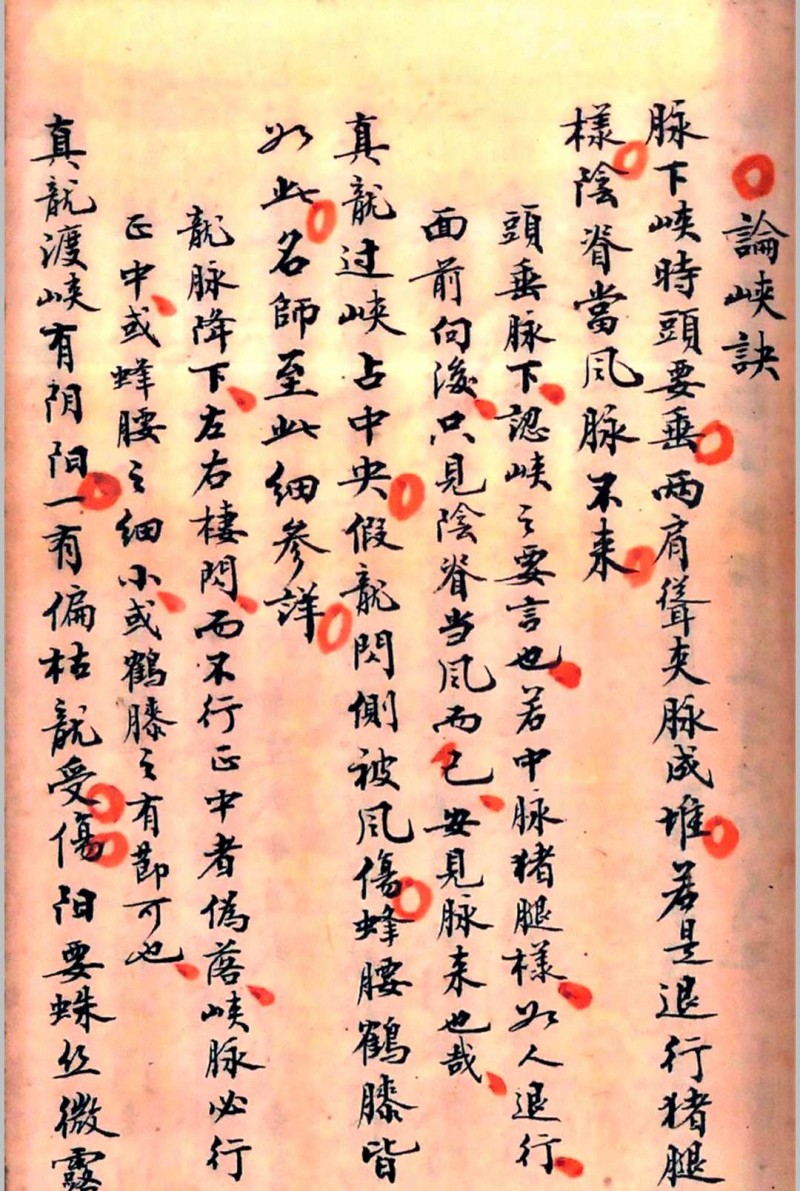 論峡訣
脉下峡時頭要垂两肩聳夹脉成堆若是退行猪腿
樣陰脊當风脉不来
頭垂脉下認峡之要言也若中脉猪腿樣如人退行
面前向後只見陰脊当风而已安見脉来也哉
真龍过峡占中央假龍閃側被风傷蜂腰鶴膝皆
如此名師至此细参詳
龍脉降下左右棲閃而不行正中者偽落峡脉必行
正中或蜂腰之细小或鶴膝之有節可也
真龍渡峡有阴阳一有偏枯龍受傷阳要蛛丝微露